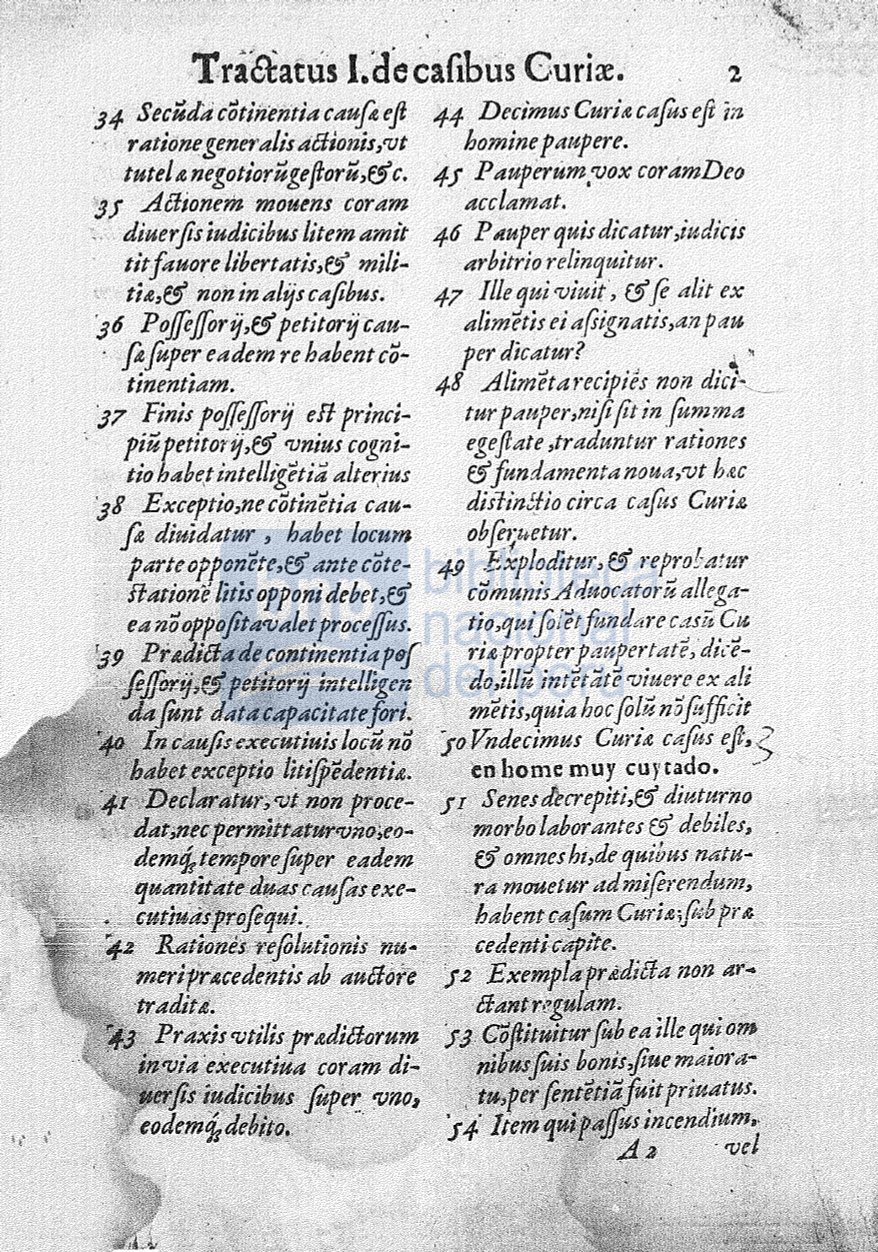 Tractatus I. de casibus Curiæ. 2
34 Secũda cõtinentia causæ est
ratione generalis actionis, vt
tutelæ negotiorũ gestorũ, & c.
35 Actionem mouens coram
diuersis iudicibus litem amit
tit fauore libertatis, & mili-
tiæ, & non in alijs casibus.
36 Possessorij, & petitorij cau-
sæ super eadem re habent cõ-
tinentiam.
37 Finis possessorij est princi-
piũ petitorij, & vnius cogni-
tio habet intelligẽtiã alterius
38 Exceptio, ne cõtinẽtia cau-
sæ diuidatur, habet locum
parte opponẽte, & ante cõte-
statione litis opponi debet, &
ea nõ opposita valet processus.
39 Prædicta de continentia pos
sessorij, & petitorij intelligen
da sunt data capacitate fori.
40 In causis executiuis locũ nõ
habet exceptio litispẽdentiæ.
41 Declaratur, vt non proce-
dat, nec permittatur vno, eo-
demq́; tempore super eadem
quantitate duas causas exe-
cutiuas prosequi.
42 Rationes resolutionis nu-
meri præcedentis ab auctore
traditæ.
43 Praxis vtilis prædictorum
in via executiua coram di-
uersis iudicibus super vno,
eodemq́; debito.
44 Decimus Curiæ casus est in
homine paupere.
45 Pauperum vox coram Deo
acclamat.
46 Pauper quis dicatur, iudicis
arbitrio relinquitur.
47 Ille qui viuit, & se alit ex
alimẽtis ei assignatis, an pau
per dicatur?
48 Alimẽta recipiẽs non dici-
tur pauper, nisi sit in summa
egestate, traduntur rationes
& fundamenta noua, vt hæc
distinctio circa casus Curiæ
obseruetur.
49 Exploditur, & reprobatur
cõmunis Aduocatorũ allega-
tio, qui solẽt fundare casũ Cu
riæ propter paupertatẽ, dicẽ-
do, illũ intẽtãtẽ viuere ex ali
mẽtis, quia hoc solũ nõ sufficit
50 Vndecimus Curiæ casus est,
en home muy cuytado.
51 Senes decrepiti, & diuturno
morbo laborantes & debiles,
& omnes hi, de quibus natu-
ra mouetur ad miserendum,
habent casum Curiæ; sub præ
cedenti capite.
52 Exempla prædicta non ar-
ctant regulam.
53 Cõstituitur sub ea ille qui om
nibus suis bonis, siue maiora-
tu, per sentẽtiã fuit priuatus.
54 Item qui passus incendium,
A 2 vel
bnp
biblioteca
nacional
del perú